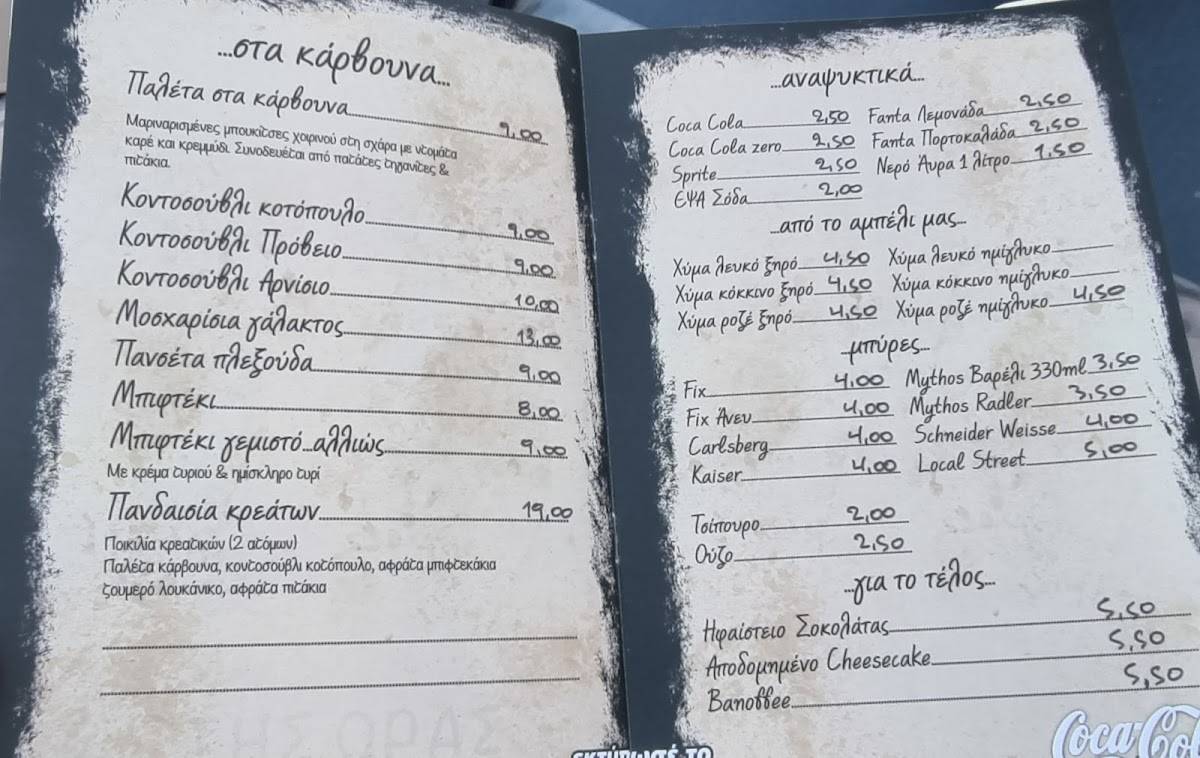 ...στα κάρβουνα...
Παλέτα στα κάρβουνα 9,00
Μαριναρισμένες μπουκίτσες χοιρινού στη σχάρα με ντομάτα
καρέ και κρεμμύδι. Συνοδευέται από πατάτες τηγανίτες &
πιτάκια.
Κοντοσούβλι κοτόπουλο 9,00
Κοντοσούβλι Πρόβειο 9,00
Κοντοσούβλι Αρνίσιο 10,00
Μοσχαρίσια γάλακτος 13,00
Πανσέτα πλεξούδα 9,00
Μπιφτέκι 8,00
Μπιφτέκι γεμιστό...αλλιώς 9,00
Με κρέμα τυριού & ημίσκληρο τυρί
Πανδαισία κρεάτων 19,00
Ποικιλία κρεατικών (2 ατόμων)
Παλέτα κάρβουνα, κοντοσούβλι κοτόπουλο, αφράτα μπιφτεκάκια
ζουμερό λουκάνικο, αφράτα πιτάκια
...αναψυκτικά...
Coca Cola 2,50 Fanta Λεμονάδα 2,50
Coca Cola zero 2,50 Fanta Πορτοκαλάδα 2,50
Sprite 2,50 Νερό Άυρα 1 λίτρο 1,50
ΕΨΑ Σόδα 2,00
...από το αμπέλι μας...
Χύμα λευκό ξηρό 4,50 Χύμα λευκό ημίγλυκο
Χύμα κόκκινο ξηρό 4,50 Χύμα κόκκινο ημίγλυκο
Χύμα ροζέ ξηρό 4,50 Χύμα ροζέ ημίγλυκο 4,50
...μπύρες...
Fix 4,00 Mythos Βαρέλι 330ml 3,50
Fix Άνευ 4,00 Mythos Radler 3,50
Carlsberg 4,00 Schneider Weisse 4,00
Kaiser 4,00 Local Street 5,00
Τσίπουρο 2,00
Ούζο 2,50
...για το τέλος...
Ηφαίστειο Σοκολάτας 5,50
Αποδομημένο Cheesecake 5,50
Banoffee 5,50
Coca-Col